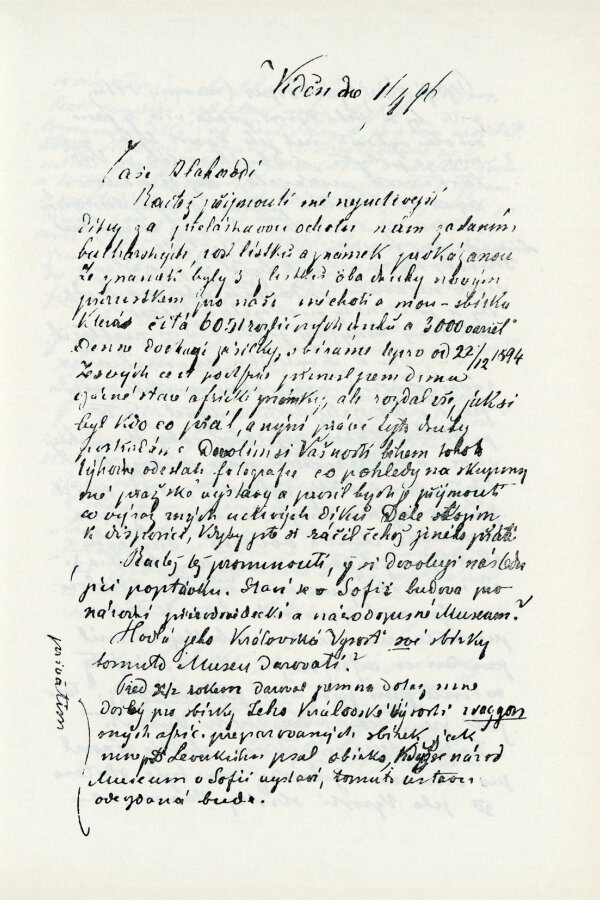 Vídeň dne 1/4 96
Vaše Blahorodí
Račtež přijmouti mé nejuctivější
díky za přeláskavou ochotu nám zadáním
bucharských, lístků a známek prokázanou
Ze známek byly 3 lístků oba druhy novým
přírůstkem pro naše choti a mou sbírku
která čítá různých druhů a 3000 variet
Denně docházejí zásilky, sbíráme teprv od 22/12 1894
Z svých cest přinesl jsem domů
vzácné staré africké známky, ale rozdal vše, jak si
byl kdo co přál, a nyní právě tyto druhy
postrádám. Dovolím si Vašnosti během tohoto
týhodne odeslati fotografie co pohledy na skupiny
mé pražské výstavy a prosil bych je přijmouti
co výraz mých uctivých díků. Dále stojím
k disposici, kdyby jste si ráčil čehož jiného přáti
Račtež též prominouti, že si dovoluji násle-
jící poptávku. Staví se v Sofii budova pro
národní přírodovědecké a národopisné Museum?
Hodlá jeho Královská Výsost své sbírky
tomuto Museu darovati?
Před 2 1/2 rokem daroval jsem na dotaz, mne
došlý pro sbírky Jeho Královské Výsosti 1 waggon
mých afric. preparovaných sbírek, jak
mne Dr Leverkühn psal sbírka, když se národ
Museum v Sofii vystaví, tomuto ústavu
odevzdaná bude.
privátim